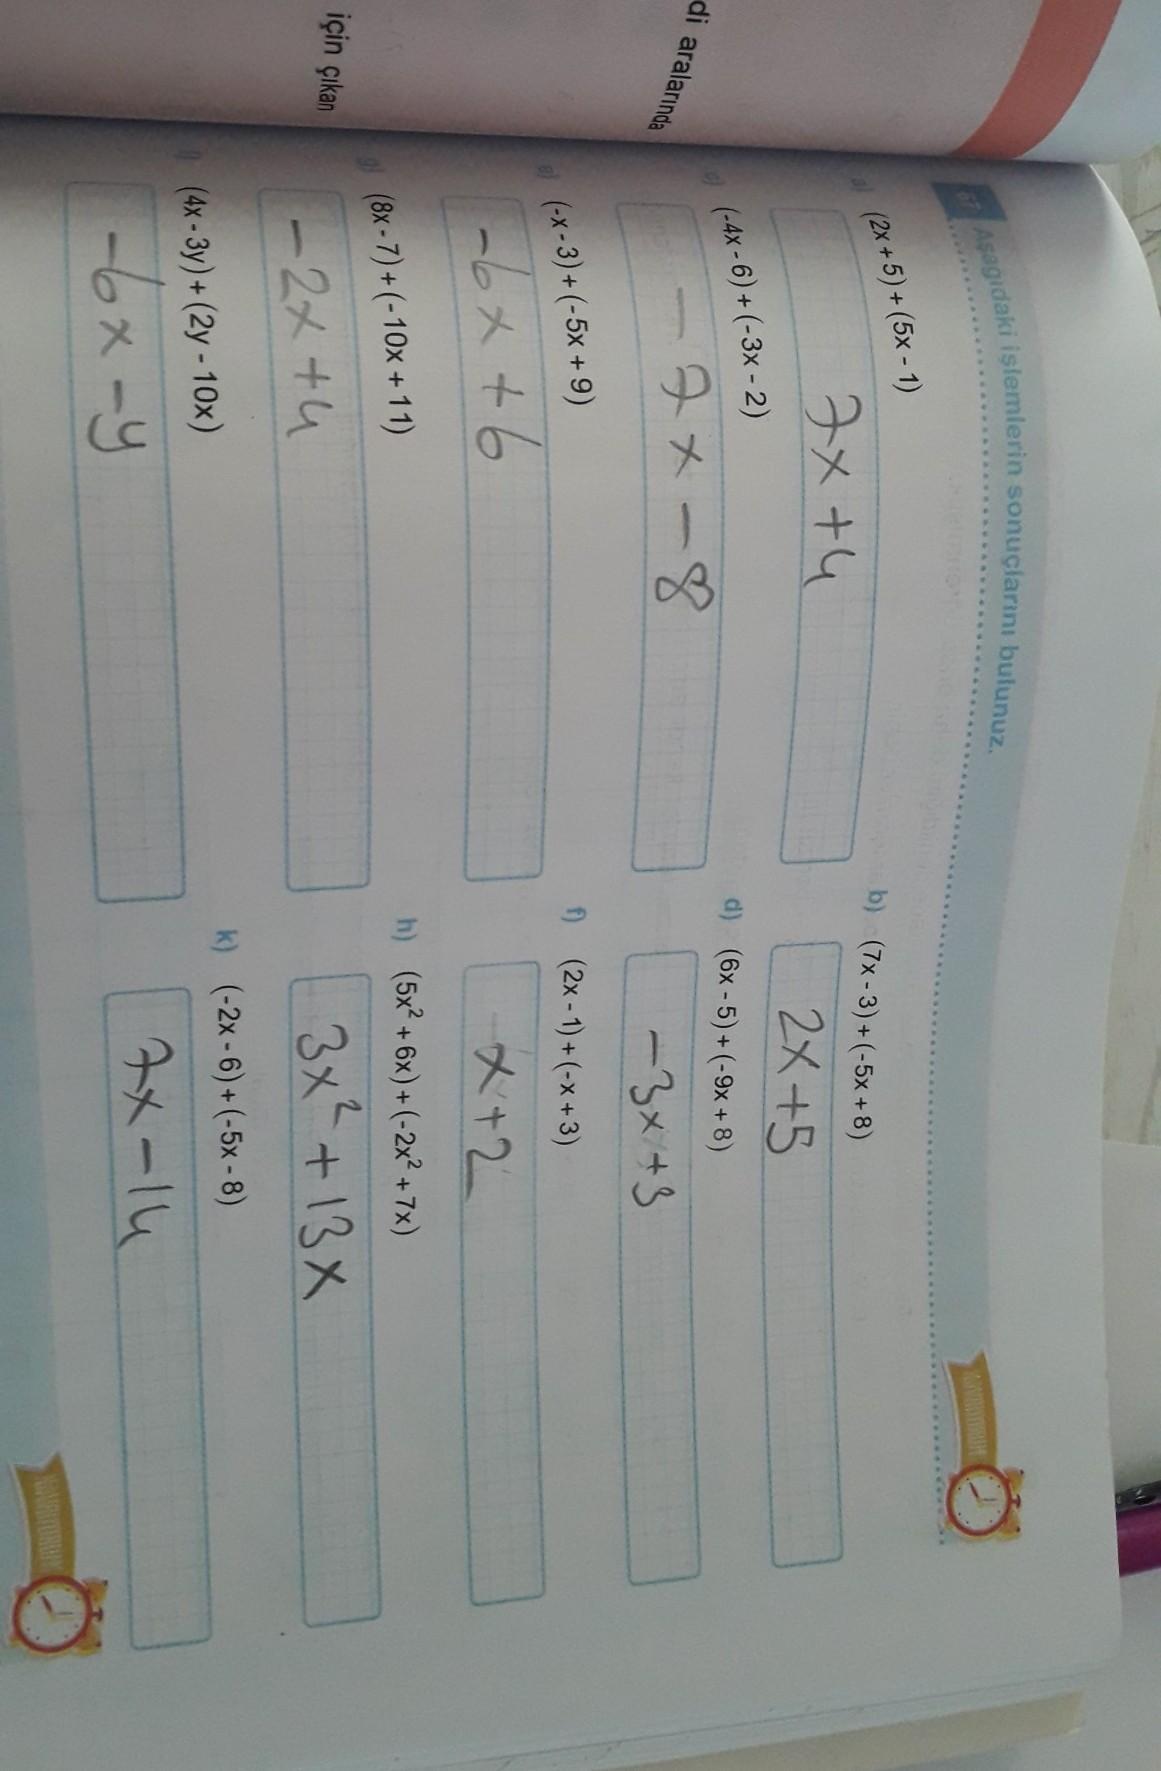 di aralarında
için çıkan
67 Aşağıdaki işlemlerin sonuçlarını bulunuz.
a) (2x + 5) + (5x - 1)
7x + 4
b) (7x - 3) + (-5x + 8)
2x + 5
c) (-4x - 6) + (-3x - 2)
- 7x - 8
d) (6x - 5) + (-9x + 8)
-3x + 3
e) (-x - 3) + (-5x + 9)
-6x + 6
f) (2x - 1) + (-x + 3)
x + 2
g) (8x - 7) + (-10x + 11)
-2x + 4
h) (5x² + 6x) + (-2x² + 7x)
3x² + 13x
(4x - 3y) + (2y - 10x)
-6x - y
k) (-2x - 6) + (-5x - 8)
7x - 14